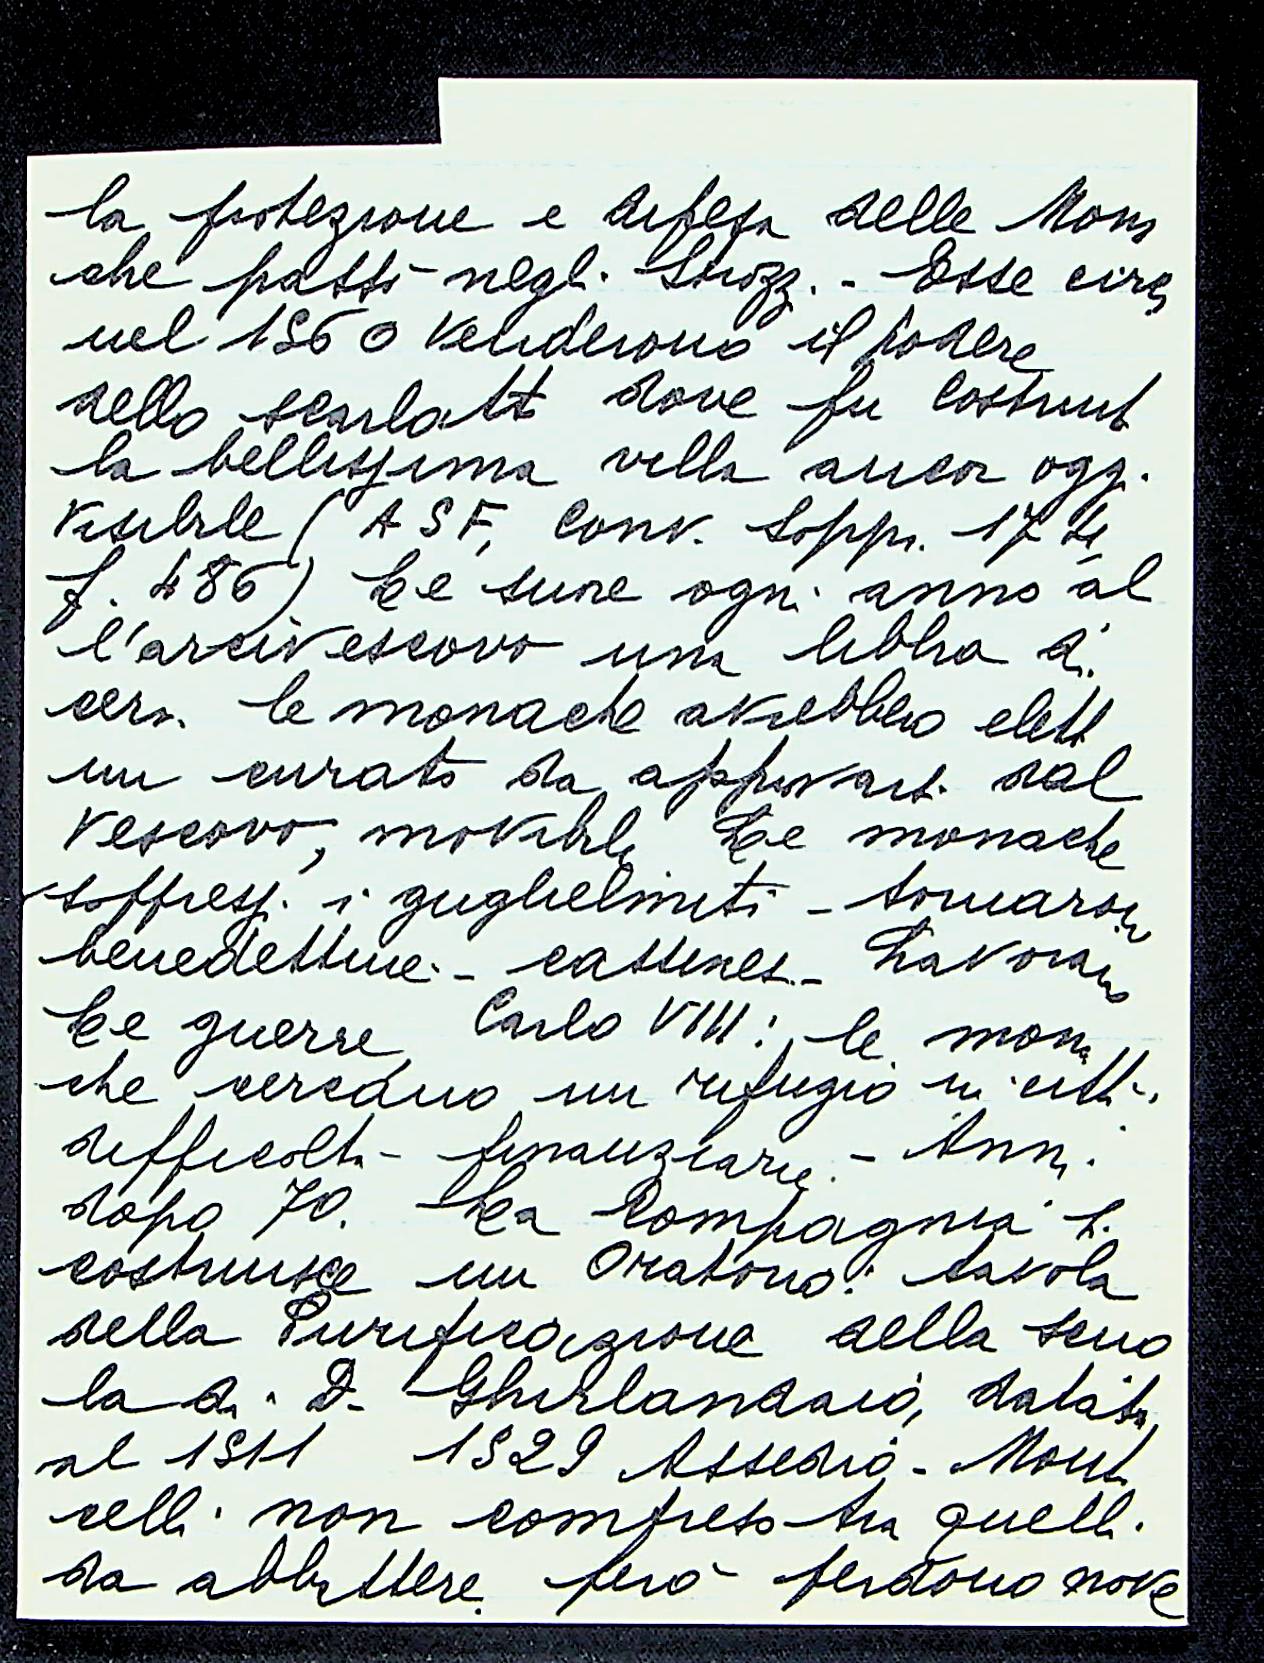 la protezione e difesa delle Mona
che passò negli Strozzi. - Esse circa
nel 1560 venderono il podere
dello scarlatti dove fu costruit
la bellissima villa ancor oggi
visibile (ASF, Conv. Soppr. 17
f. 486) Le suore ogni anno al
l'arcivescovo una libbra di
cera. le monache avrebbero elett
un curato da approvarsi dal
Vescovo, movibile Le monache
soppressi i guglielmiti - tornarono
benedettine - cassinesi - Lavorano
Le guerre Carlo VIII: le mona
che cercano un rifugio in città,
difficoltà - finanziarie - Anni
dopo 70. La Compagnia si
costruisce un Oratorio: tavola
della Purificazione della scuo
la di D. Ghirlandaio, datata
al 1511 1529 Assedio - Monti
celli non compreso tra quelli
da abbattere però perdono nove